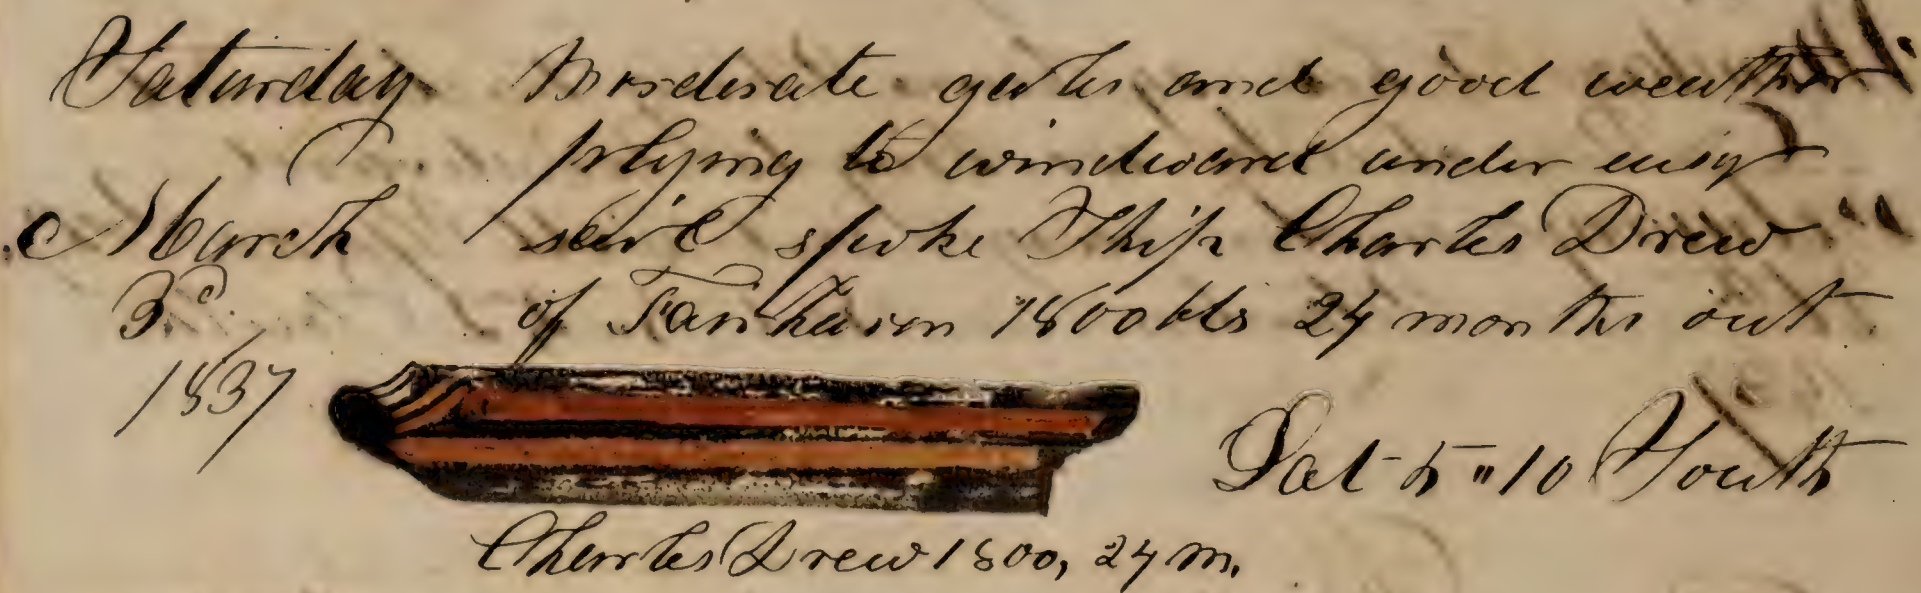 Saturday Moderate gales and good weather
plying to windward under easy
March sail spoke Ship Charles Drew
3d of Fairhaven 1800 bls 24 months out
1837
Lat 5"10 South
Charles Drew 1800, 24 m.